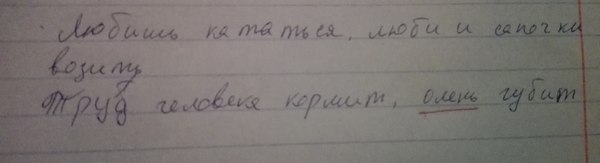 Любишь кататься, люби и сапочки
возить
Труд человека кормит, олень губит